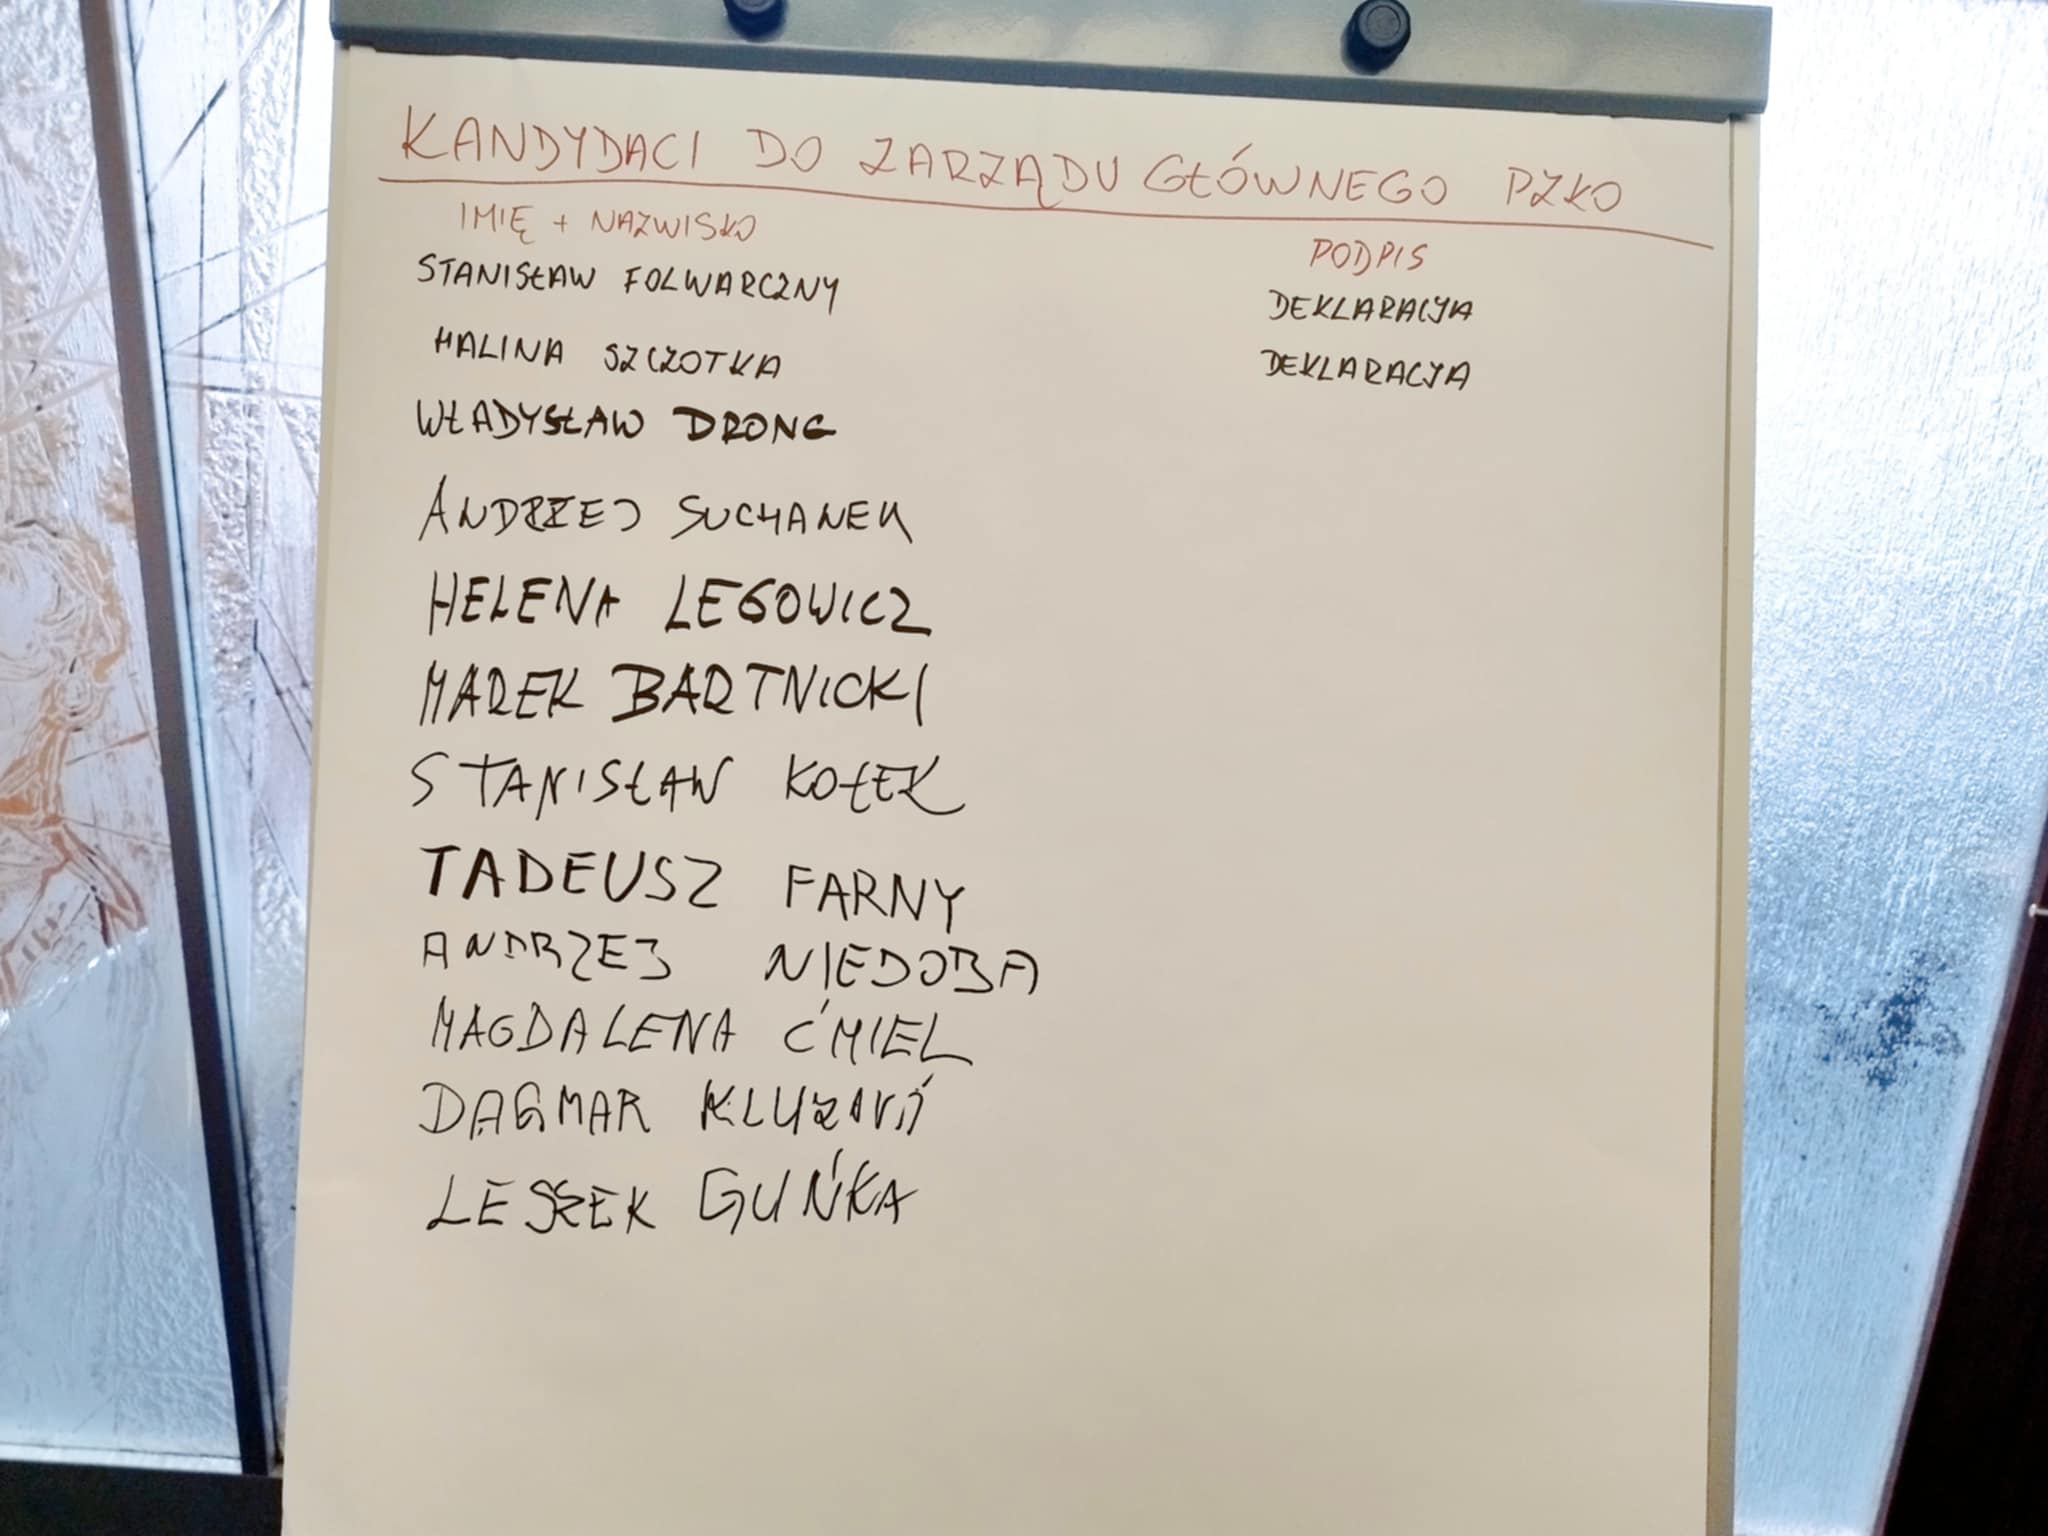 KANDYDACI DO ZARZĄDU GŁÓWNEGO PZKO
IMIĘ + NAZWISKO PODPIS
STANISŁAW FOLWARCZNY DEKLARACYJA
HALINA SZCZOTKA DEKLARACYJA
WŁADYSŁAW DRONG
ANDRZEJ SUCHANEK
HELENA LEGOWICZ
MAREK BARTNICKI
STANISŁAW KOŁEK
TADEUSZ FARNY
ANDRZEJ NIEDOBA
MAGDALENA ĆMIEL
DAGMAR
LESZEK GUŃKA